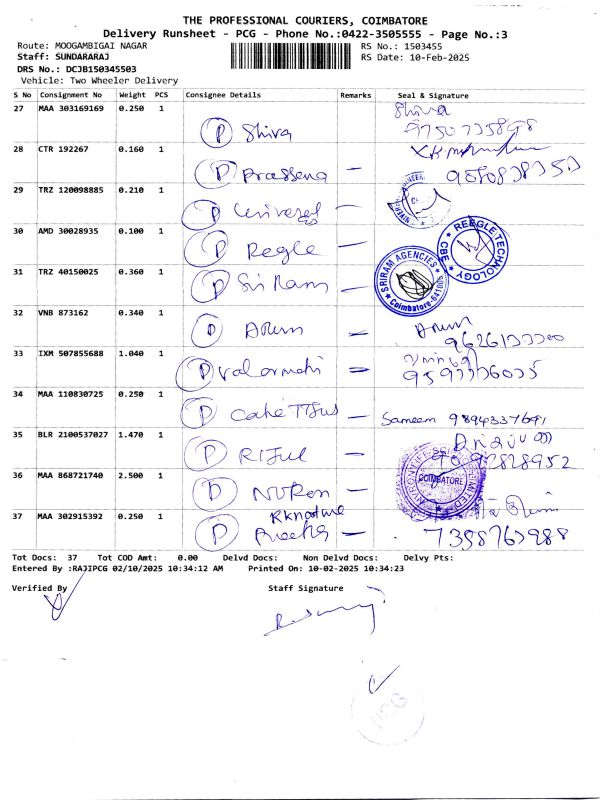 THE PROFESSIONAL COURIERS, COIMBATORE
Delivery Runsheet - PCG - Phone No.:0422-3505555 - Page No.:3
Route: MOOGAMBIGAI NAGAR RS No.: 1503455
Staff: SUNDARARAJ RS Date: 10-Feb-2025
DRS No.: DCJB150345503
Vehicle: Two Wheeler Delivery
S No Consignment No Weight PCS Consignee Details Remarks Seal & Signature
27 MAA 303169169 0.250 1 D Shiva Shiva
28 CTR 192267 0.160 1 D Prassena —
29 TRZ 120098885 0.210 1 D —
30 AMD 30028935 0.100 1 D Regle — REEGLE TECHNOLOGY CBE
31 TRZ 40150025 0.360 1 D Sri Ram — SRIRAM AGENCIES Coimbatore-641005
32 VNB 873162 0.340 1 D Arum — Arum
33 IXM 507855688 1.040 1 D Valarmathi —
34 MAA 110830725 0.250 1 D — Sameem 9894337691
35 BLR 2100537027 1.470 1 D RIFUL — 9092828952
36 MAA 868721740 2.500 1 D — COIMBATORE
37 MAA 302915392 0.250 1 D — 7358763988
Tot Docs: 37 Tot COD Amt: 0.00 Delvd Docs: Non Delvd Docs: Delvy Pts:
Entered By :RAJIPCG 02/10/2025 10:34:12 AM Printed On: 10-02-2025 10:34:23
Verified By Staff Signature
PCG